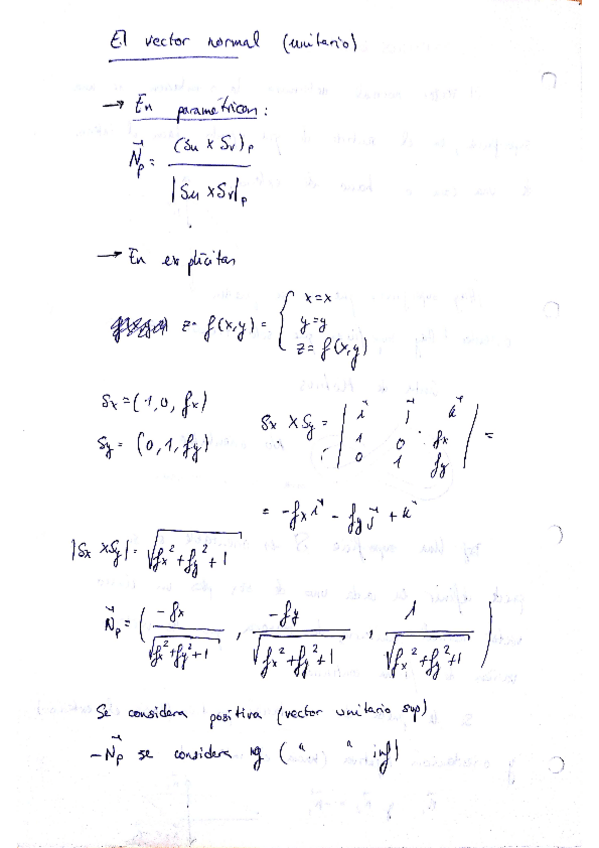 El vector normal (unitario)
→ En paramétricas:
N⃗p = (Su x Sv)p / |Su x Sv|p
→ En explícitas
z = f(x,y) = { x=x
y=y
z = f(x,y)
Sx = (1, 0, fx)
Sy = (0, 1, fy)
Sx X Sy = | i⃗ j⃗ k⃗ |
| 1 0 fx | =
| 0 1 fy |
= -fx i⃗ - fy j⃗ + k⃗
|Sx x Sy| = √(fx² + fy² + 1)
N⃗p = ( -fx / √(fx² + fy² + 1) , -fy / √(fx² + fy² + 1) , 1 / √(fx² + fy² + 1) )
Se considera positiva (vector unitario sup)
- N⃗p se considera (" " inf)